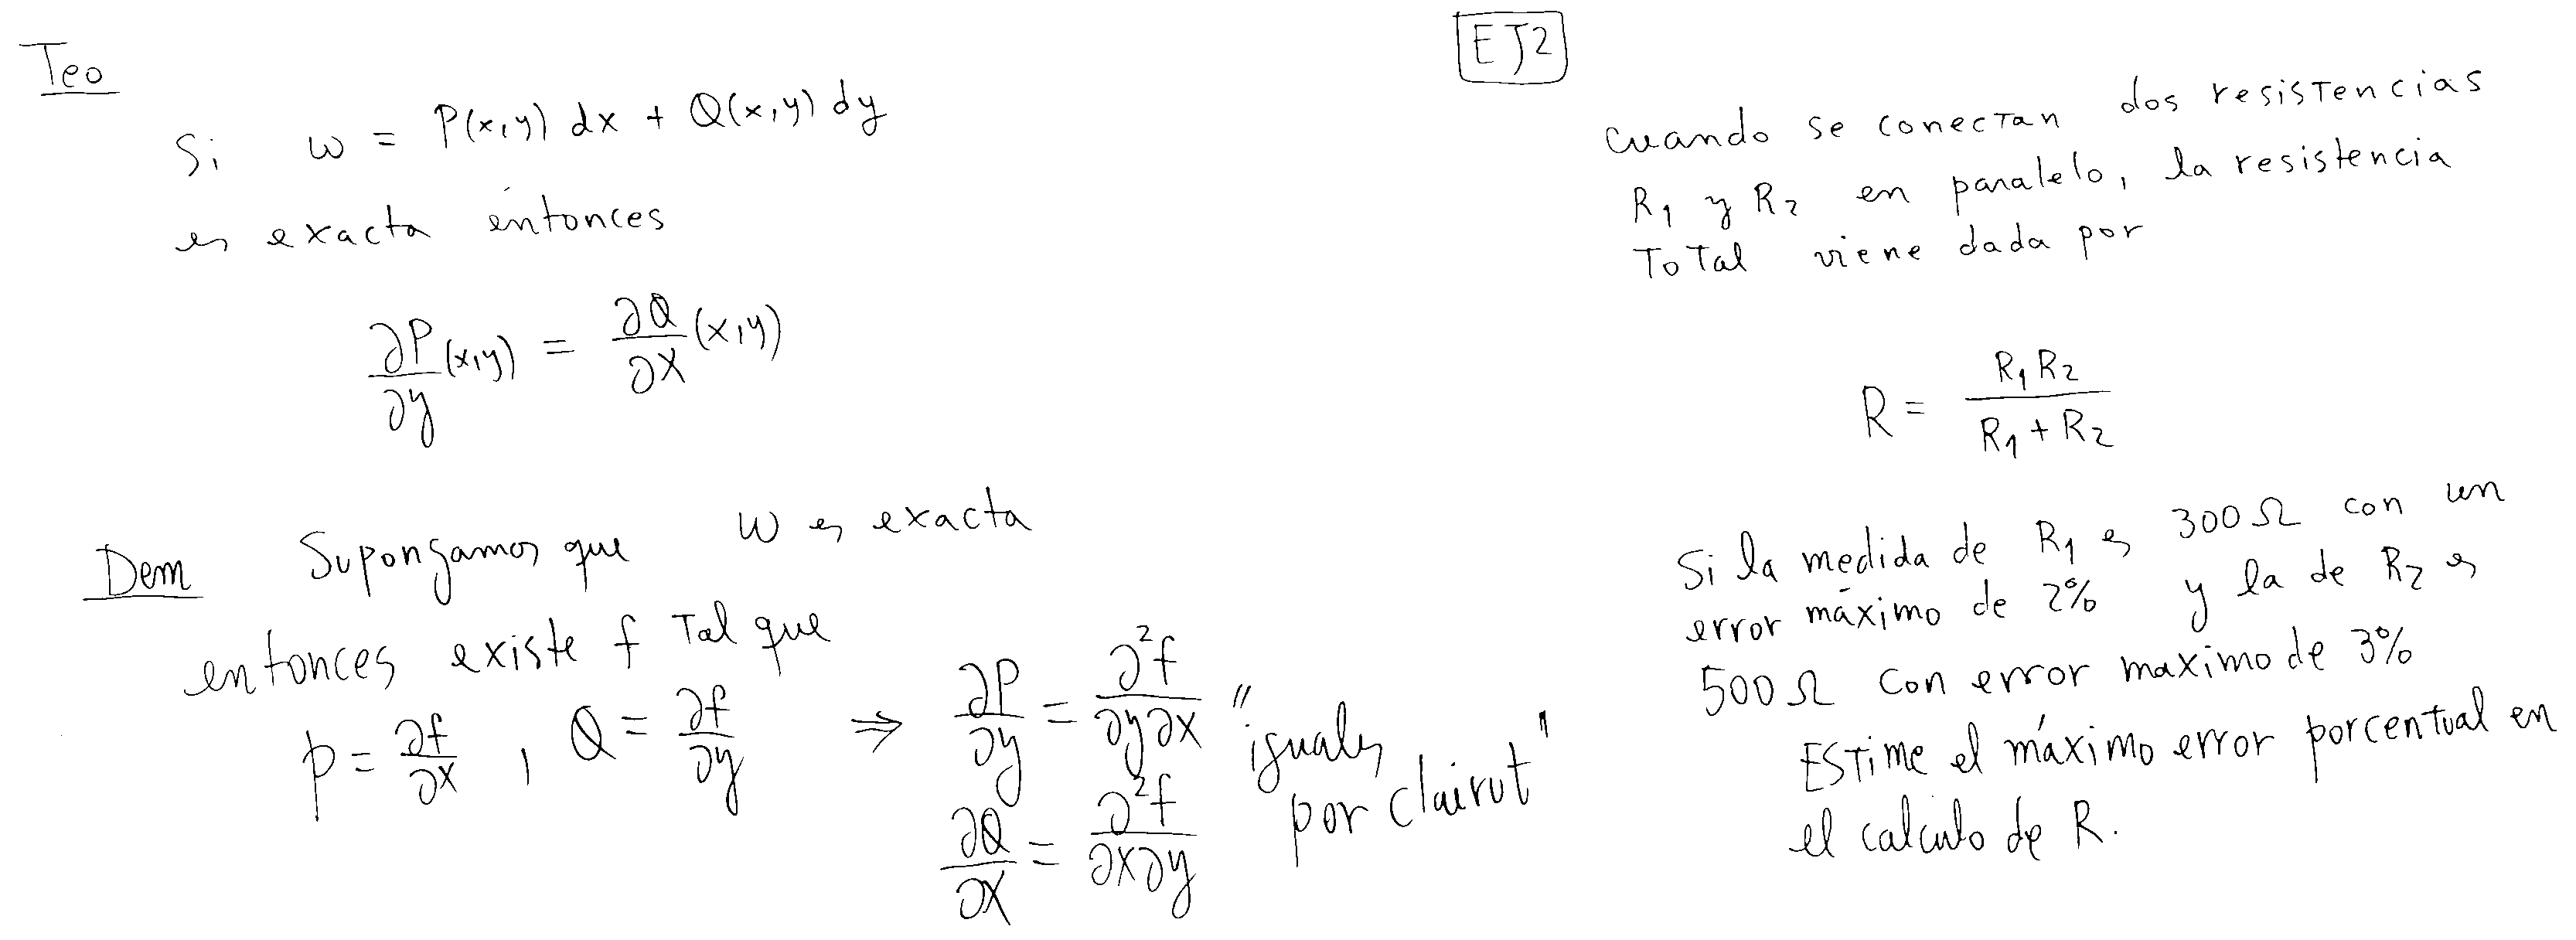 Teo
Si w = P(x,y) dx + Q(x,y) dy
es exacta entonces
∂P/∂y (x,y) = ∂Q/∂x (x,y)
Dem Supongamos que w es exacta
entonces existe f Tal que
P = ∂f/∂x , Q = ∂f/∂y ⇒ ∂P/∂y = ∂²f/∂y∂x
∂Q/∂x = ∂²f/∂x∂y
"iguales
por clairut"
EJ2
Cuando se conectan dos resistencias
R₁ y R₂ en paralelo, la resistencia
Total viene dada por
R = R₁R₂/(R₁ + R₂)
Si la medida de R₁ es 300 Ω con un
error máximo de 2% y la de R₂ es
500 Ω con error maximo de 3%
Estime el máximo error porcentual en
el calculo de R.